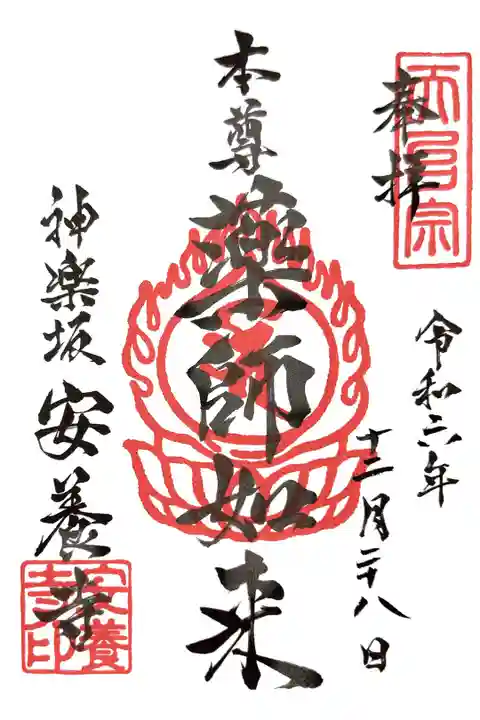 奉拝
天台宗
令和六年
十二月二十八日
本尊
薬師如来
神楽坂 安養寺
安養寺印